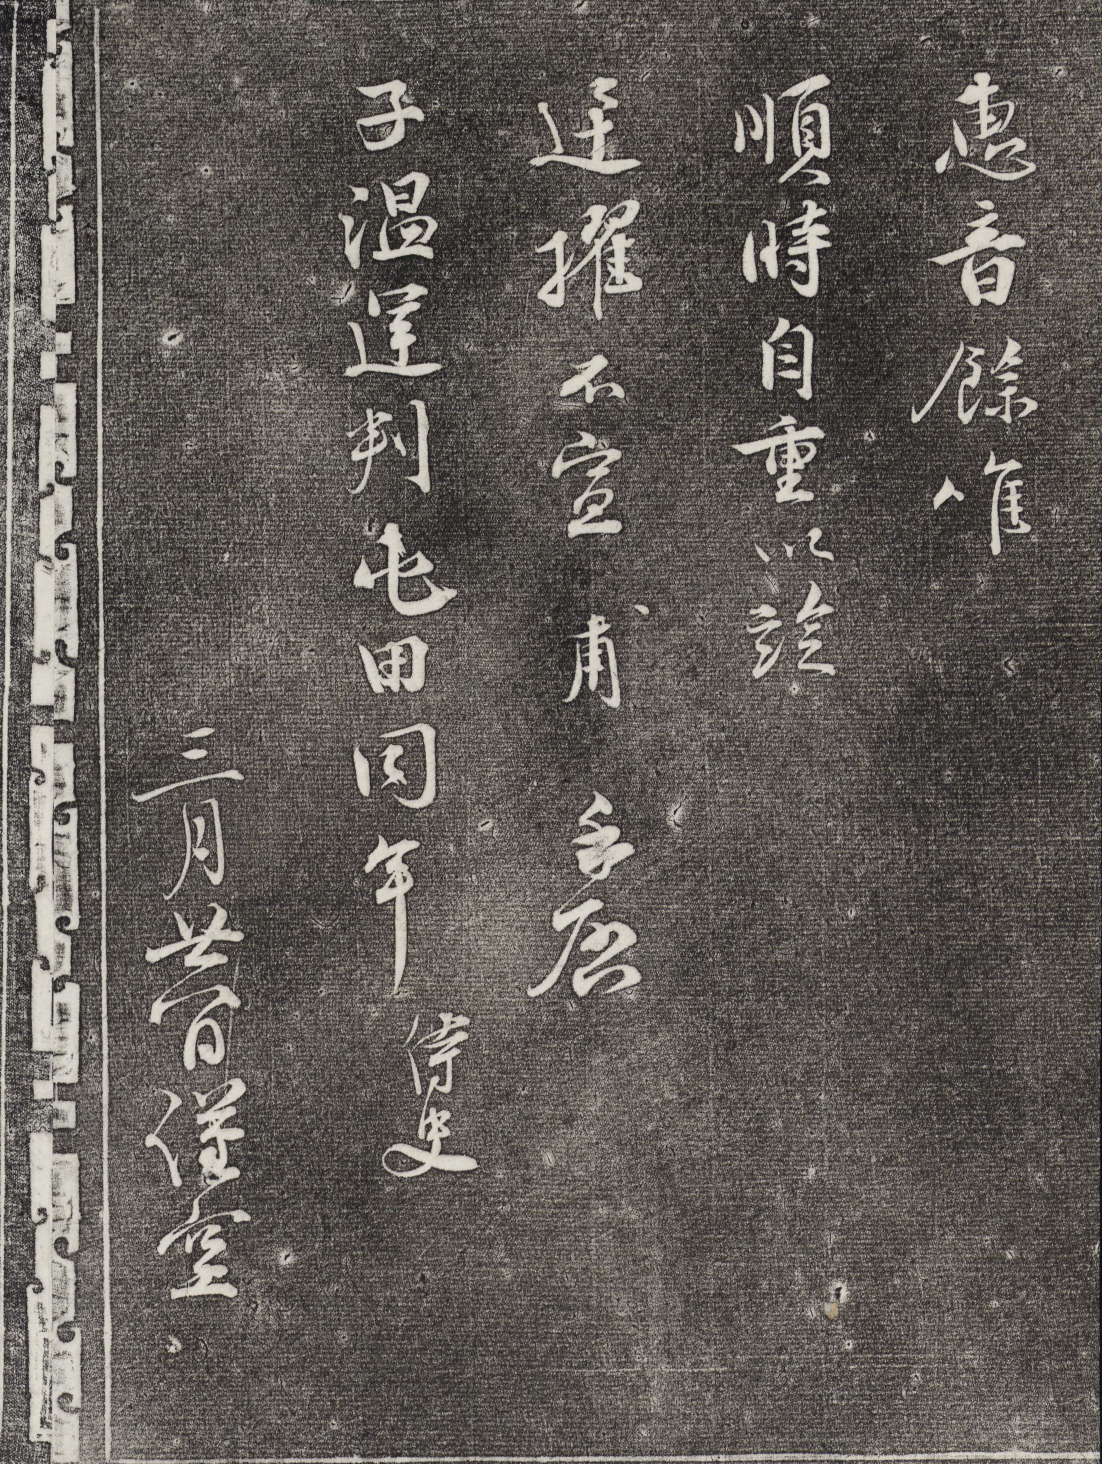 惠音餘惟
順時自重以
擢不宣 甫 手啓
子溫運判屯田同年 侍史
三月廿一日謹空